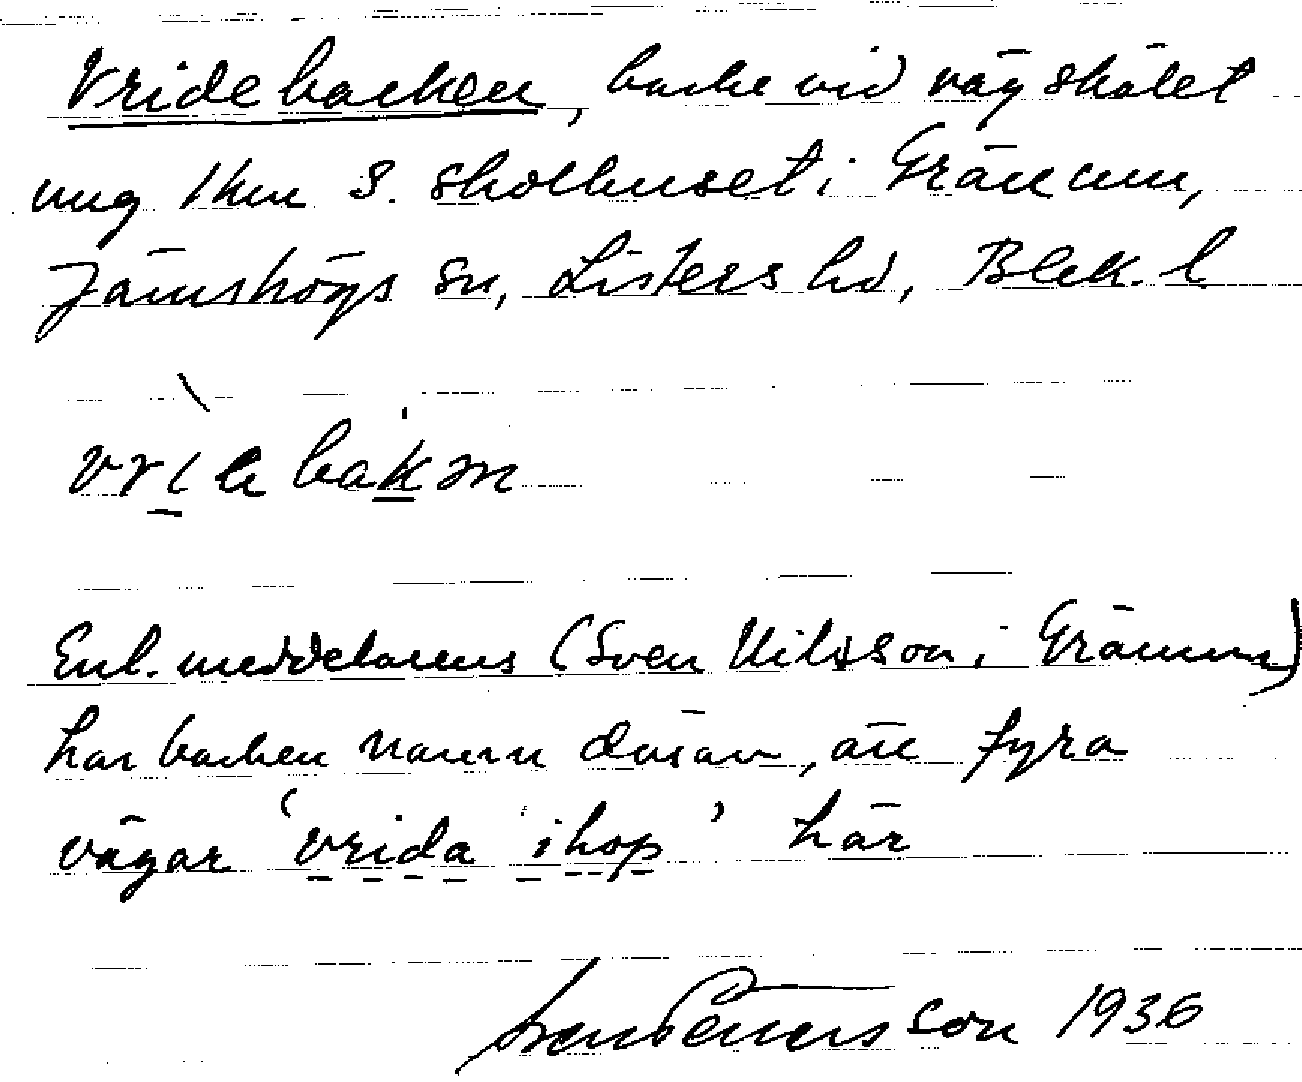 Vridebacken, backe vid vägskälet
ung 1 km S. skolhuset i Gränum,
Jämshögs sn, Listers hd, Blek. l
Enl. meddelarens (Sven Nilsson, i Gränum)
har backen namn därav, att fyra
vägar 'vrida ihop' här
Sven Pettersson 1936